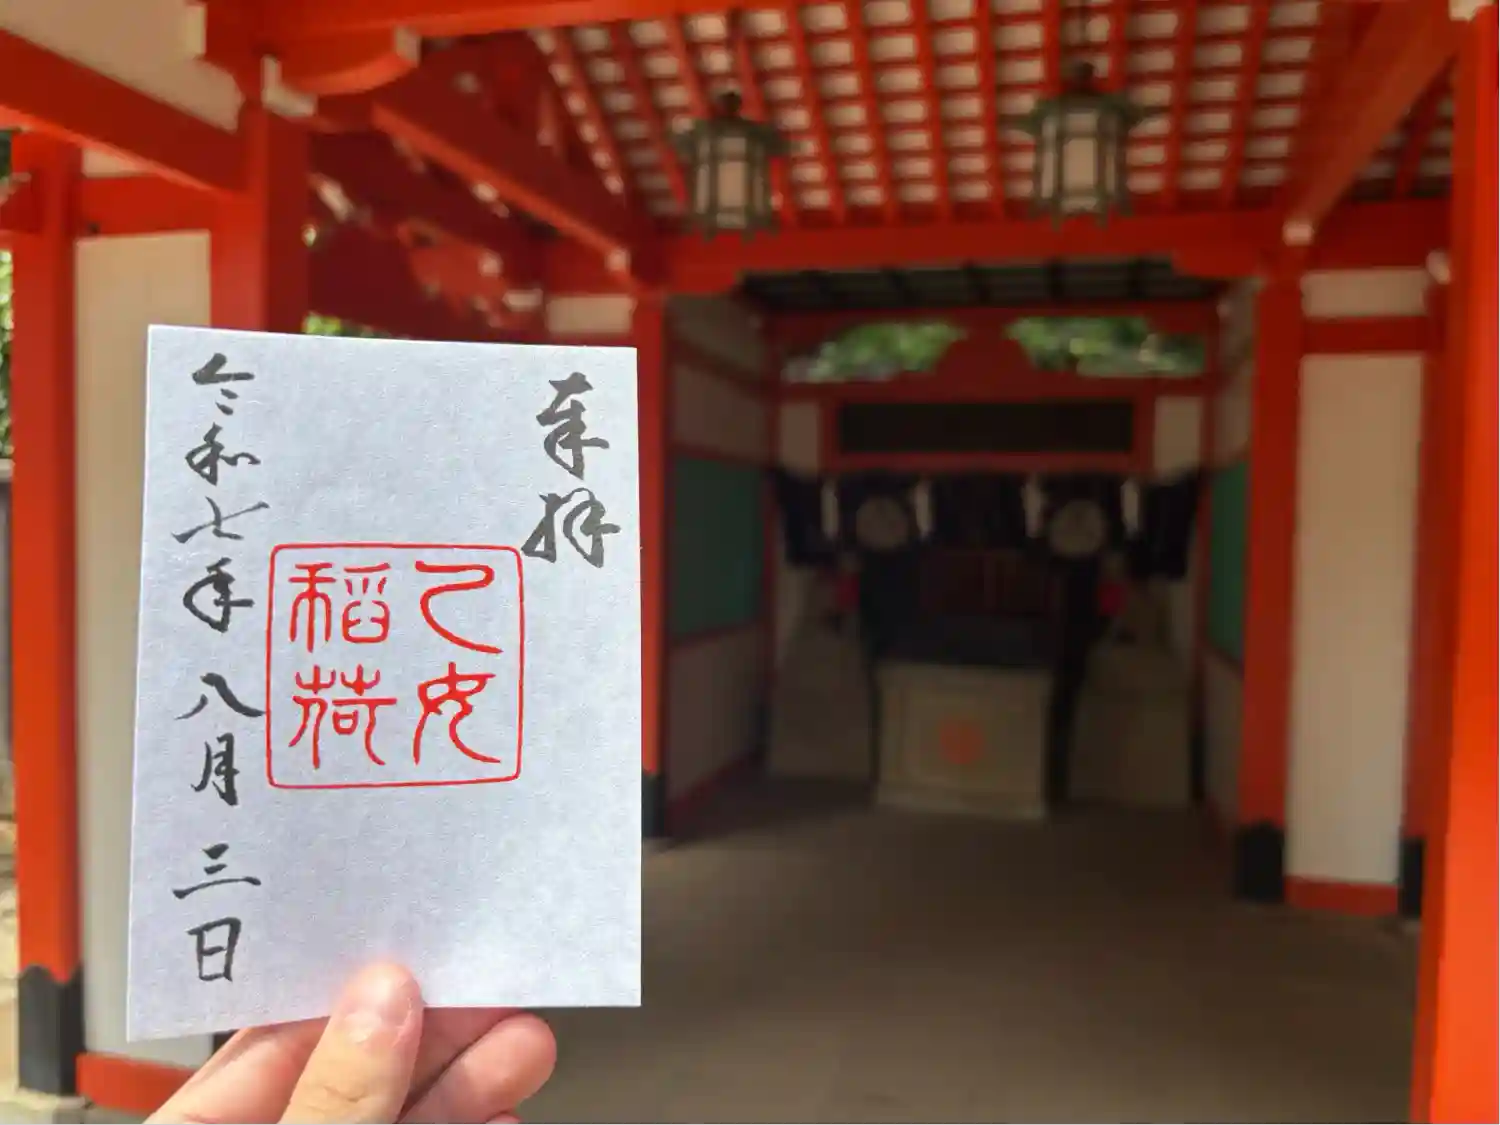 奉拝
乙女
稲荷
令和七年 八月 三日